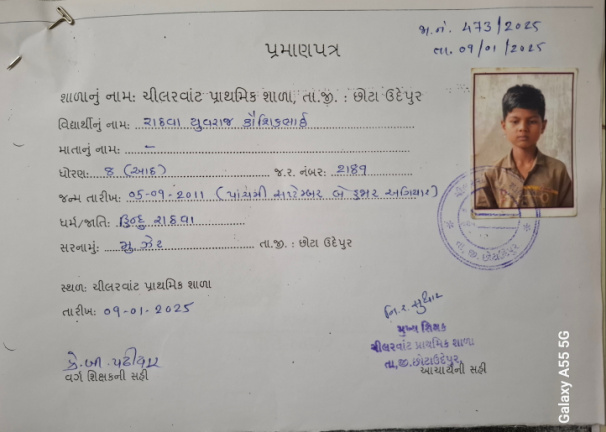 જા.નં. 473/2025
તા. 09/01/2025
પ્રમાણપત્ર
શાળાનું નામ: ચીલરવાંટ પ્રાથમિક શાળા, તા.જી. : છોટા ઉદેપુર
વિદ્યાર્થીનું નામ: રાઠવા યુવરાજ કૌશિકભાઈ
માતાનું નામ: –
ધોરણ: 8 (આઠ) જ.ર. નંબર: 2189
જન્મ તારીખ: 05-09-2011 (પાંચમી સપ્ટેમ્બર બે હજાર અગિયાર)
ધર્મ/જાતિ: હિન્દુ રાઠવા
સરનામું: મુ ઝેર તા.જી. : છોટા ઉદેપુર
સ્થળ: ચીલરવાંટ પ્રાથમિક શાળા
તારીખ: 09-01-2025
મુખ્ય શિક્ષક
ચીલરવાંટ પ્રાથમિક શાળા
તા.જી.છોટાઉદેપુર
વર્ગ શિક્ષકની સહી
આચાર્યની સહી
તા. જી. છોટાઉદેપુર
Galaxy A55 5G